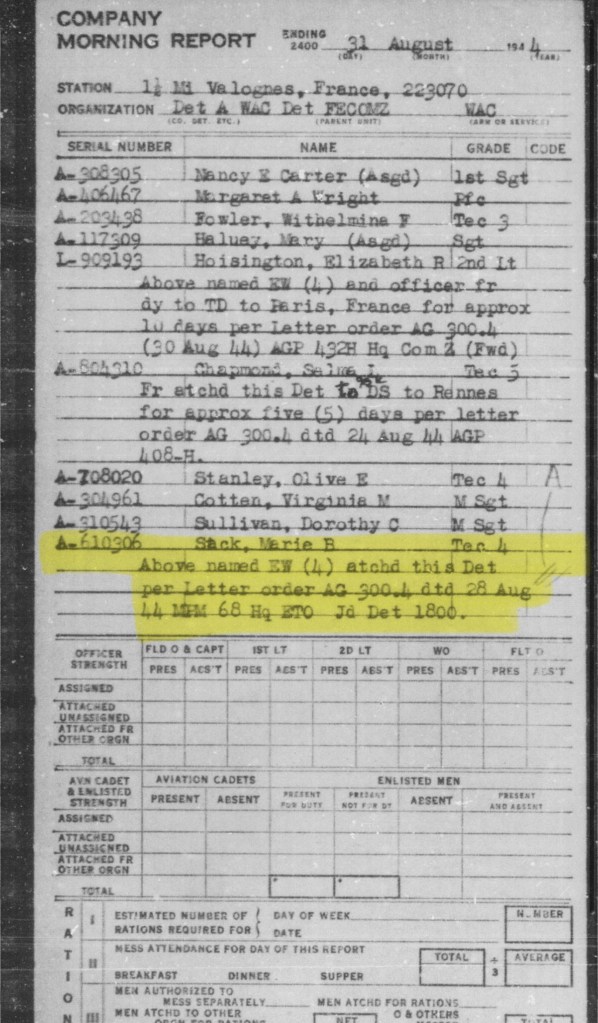 COMPANY
MORNING REPORT ENDING 2400 31 August 1944
(DAY) (MONTH) (YEAR)
STATION 1½ Mi Valognes, France, 223070
ORGANIZATION Det A WAC Det FECOMZ WAC
(CO. DET. ETC.) (PARENT UNIT) (ARM OR SERVICE)
SERIAL NUMBER NAME GRADE CODE
A-308305 Nancy E Carter (Asgd) 1st Sgt
A-406467 Margaret A Wright Pfc
A-203438 Fowler, Withelmina F Tec 3
A-117309 Haluay, Mary (Asgd) Sgt
L-909193 Hoisington, Elizabeth R 2nd Lt
Above named EW (4) and officer fr
dy to TD to Paris, France for approx
10 days per Letter order AG 300.4
(30 Aug 44) AGP 432H Hq Com Z (Fwd)
A-804310 Chapmond, Selma L Tec 5
Fr atchd this Det to DS to Rennes
for approx five (5) days per letter
order AG 300.4 dtd 24 Aug 44 AGP
408-H.
A-708020 Stanley, Olive E Tec 4
A-304961 Cotten, Virginia M M Sgt
A-310543 Sullivan, Dorothy C M Sgt
A-610306 Sack, Marie B Tec 4
Above named EW (4) atchd this Det
per Letter order AG 300.4 dtd 28 Aug
44 MPM 68 Hq ETO Jd Det 1800.
OFFICER STRENGTH FLD O & CAPT 1ST LT 2D LT WO FLT O
PRES ABS'T PRES ABS'T PRES ABS'T PRES ABS'T PRES ABS'T
ASSIGNED
ATTACHED UNASSIGNED
ATTACHED FR OTHER ORGN
TOTAL
AVN CADET & ENLISTED STRENGTH AVIATION CADETS ENLISTED MEN
PRESENT ABSENT PRESENT FOR DUTY PRESENT NOT FOR DY ABSENT PRESENT AND ABSENT
ASSIGNED
ATTACHED UNASSIGNED
ATTACHED FR OTHER ORGN
TOTAL
RATION
I ESTIMATED NUMBER OF RATIONS REQUIRED FOR DAY OF WEEK DATE NUMBER
II MESS ATTENDANCE FOR DAY OF THIS REPORT TOTAL ÷ 3 AVERAGE
BREAKFAST DINNER SUPPER
III MEN AUTHORIZED TO MESS SEPARATELY MEN ATCHD FOR RATIONS
MEN ATCHD TO OTHER ORGN FOR RATIONS NET O & OTHERS TOTAL